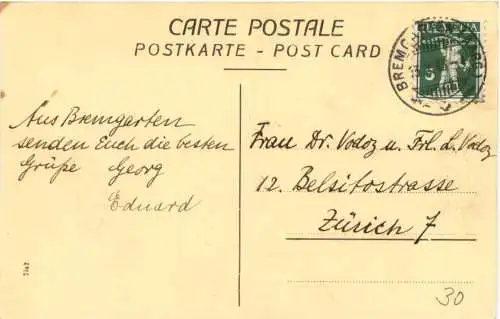 CARTE POSTALE
POSTKARTE - POST CARD
HELVETIA
5
Aus Bremgarten
senden Euch die besten
Grüße Georg
Eduard
Frau Dr. Vodoz u. Frl. L. Vodoz
12. Belsitostrasse
Zürich 7
30